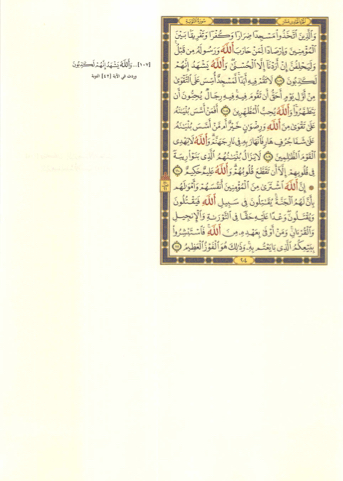 سورة التوبة
وَالَّذِينَ اتَّخَذُوا مَسْجِدًا ضِرَارًا وَكُفْرًا وَتَفْرِيقًا بَيْنَ
الْمُؤْمِنِينَ وَإِرْصَادًا لِّمَنْ حَارَبَ اللَّهَ وَرَسُولَهُ مِن قَبْلُ
وَلَيَحْلِفُنَّ إِنْ أَرَدْنَا إِلَّا الْحُسْنَىٰ وَاللَّهُ يَشْهَدُ إِنَّهُمْ
لَكَاذِبُونَ ١٠٧ لَا تَقُمْ فِيهِ أَبَدًا لَّمَسْجِدٌ أُسِّسَ عَلَى التَّقْوَىٰ
مِنْ أَوَّلِ يَوْمٍ أَحَقُّ أَن تَقُومَ فِيهِ فِيهِ رِجَالٌ يُحِبُّونَ أَن
يَتَطَهَّرُوا وَاللَّهُ يُحِبُّ الْمُطَّهِّرِينَ ١٠٨ أَفَمَنْ أَسَّسَ بُنْيَانَهُ
عَلَىٰ تَقْوَىٰ مِنَ اللَّهِ وَرِضْوَانٍ خَيْرٌ أَم مَّنْ أَسَّسَ بُنْيَانَهُ
عَلَىٰ شَفَا جُرُفٍ هَارٍ فَانْهَارَ بِهِ فِي نَارِ جَهَنَّمَ وَاللَّهُ لَا يَهْدِي
الْقَوْمَ الظَّالِمِينَ ١٠٩ لَا يَزَالُ بُنْيَانُهُمُ الَّذِي بَنَوْا رِيبَةً
فِي قُلُوبِهِمْ إِلَّا أَن تَقَطَّعَ قُلُوبُهُمْ وَاللَّهُ عَلِيمٌ حَكِيمٌ ١١٠
۞ إِنَّ اللَّهَ اشْتَرَىٰ مِنَ الْمُؤْمِنِينَ أَنفُسَهُمْ وَأَمْوَالَهُم
بِأَنَّ لَهُمُ الْجَنَّةَ يُقَاتِلُونَ فِي سَبِيلِ اللَّهِ فَيَقْتُلُونَ
وَيُقْتَلُونَ وَعْدًا عَلَيْهِ حَقًّا فِي التَّوْرَاةِ وَالْإِنجِيلِ
وَالْقُرْآنِ وَمَنْ أَوْفَىٰ بِعَهْدِهِ مِنَ اللَّهِ فَاسْتَبْشِرُوا
بِبَيْعِكُمُ الَّذِي بَايَعْتُم بِهِ وَذَٰلِكَ هُوَ الْفَوْزُ الْعَظِيمُ ١١١
[١٠٧] ... وَاللَّهُ يَشْهَدُ إِنَّهُمْ لَكَاذِبُونَ
وردت في الآية [٤٢] التوبة